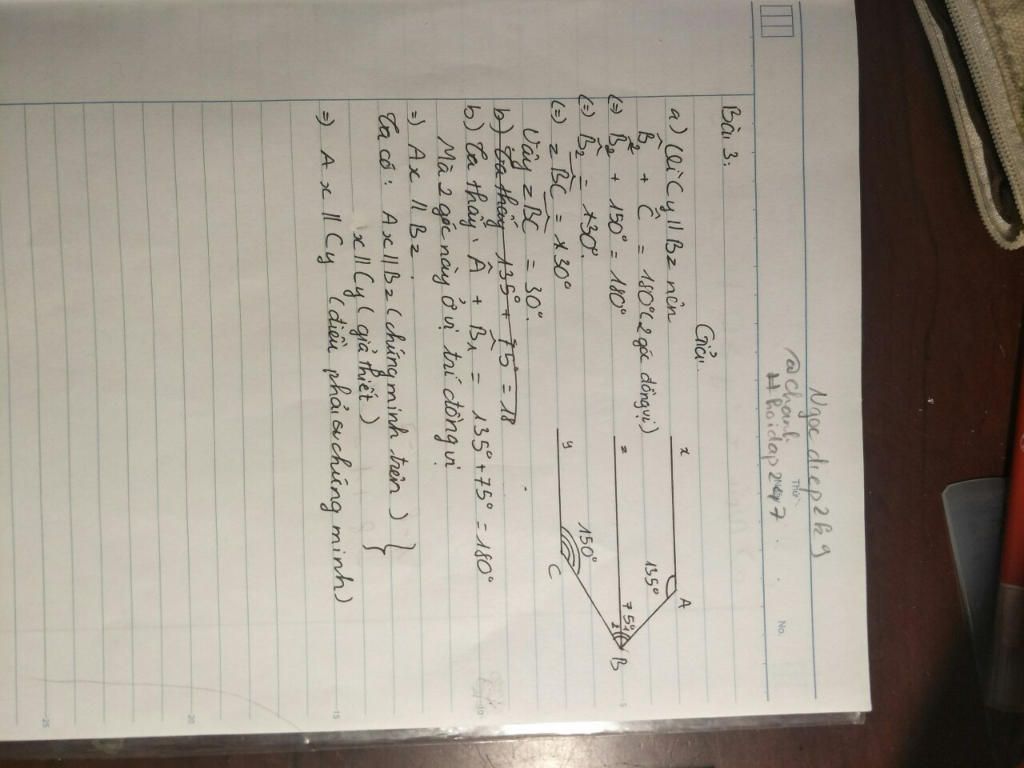 Ngocdiep2k9
@chanh
Thứ
No.
#hoidap247
Bài 3:
Giải.
a) Vì Cy // Bz nên
B̂₂ + Ĉ = 180° (2 góc đồng vị)
(=) B̂₂ + 150° = 180°
(=) B̂₂ = 30°.
(=) zBC = 30°
Vậy zBC = 30°.
b) Ta thấy 135° + 75° = 18
b) Ta thấy: Â + B̂₁ = 135° + 75° = 180°
Mà 2 góc này ở vị trí đồng vị
=) Ax // Bz.
Ta có: Ax // Bz (chứng minh trên) }
x // Cy (giả thiết) }
=) Ax // Cy (điều phải chứng minh)
x
A
135°
z
75°
1
2
B
y
150°
C
5
10
15
20
25